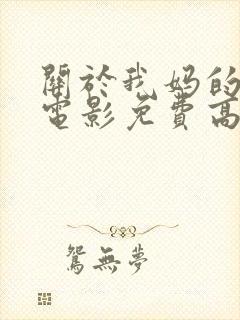 關於我媽的
電影免費高
鴛無夢